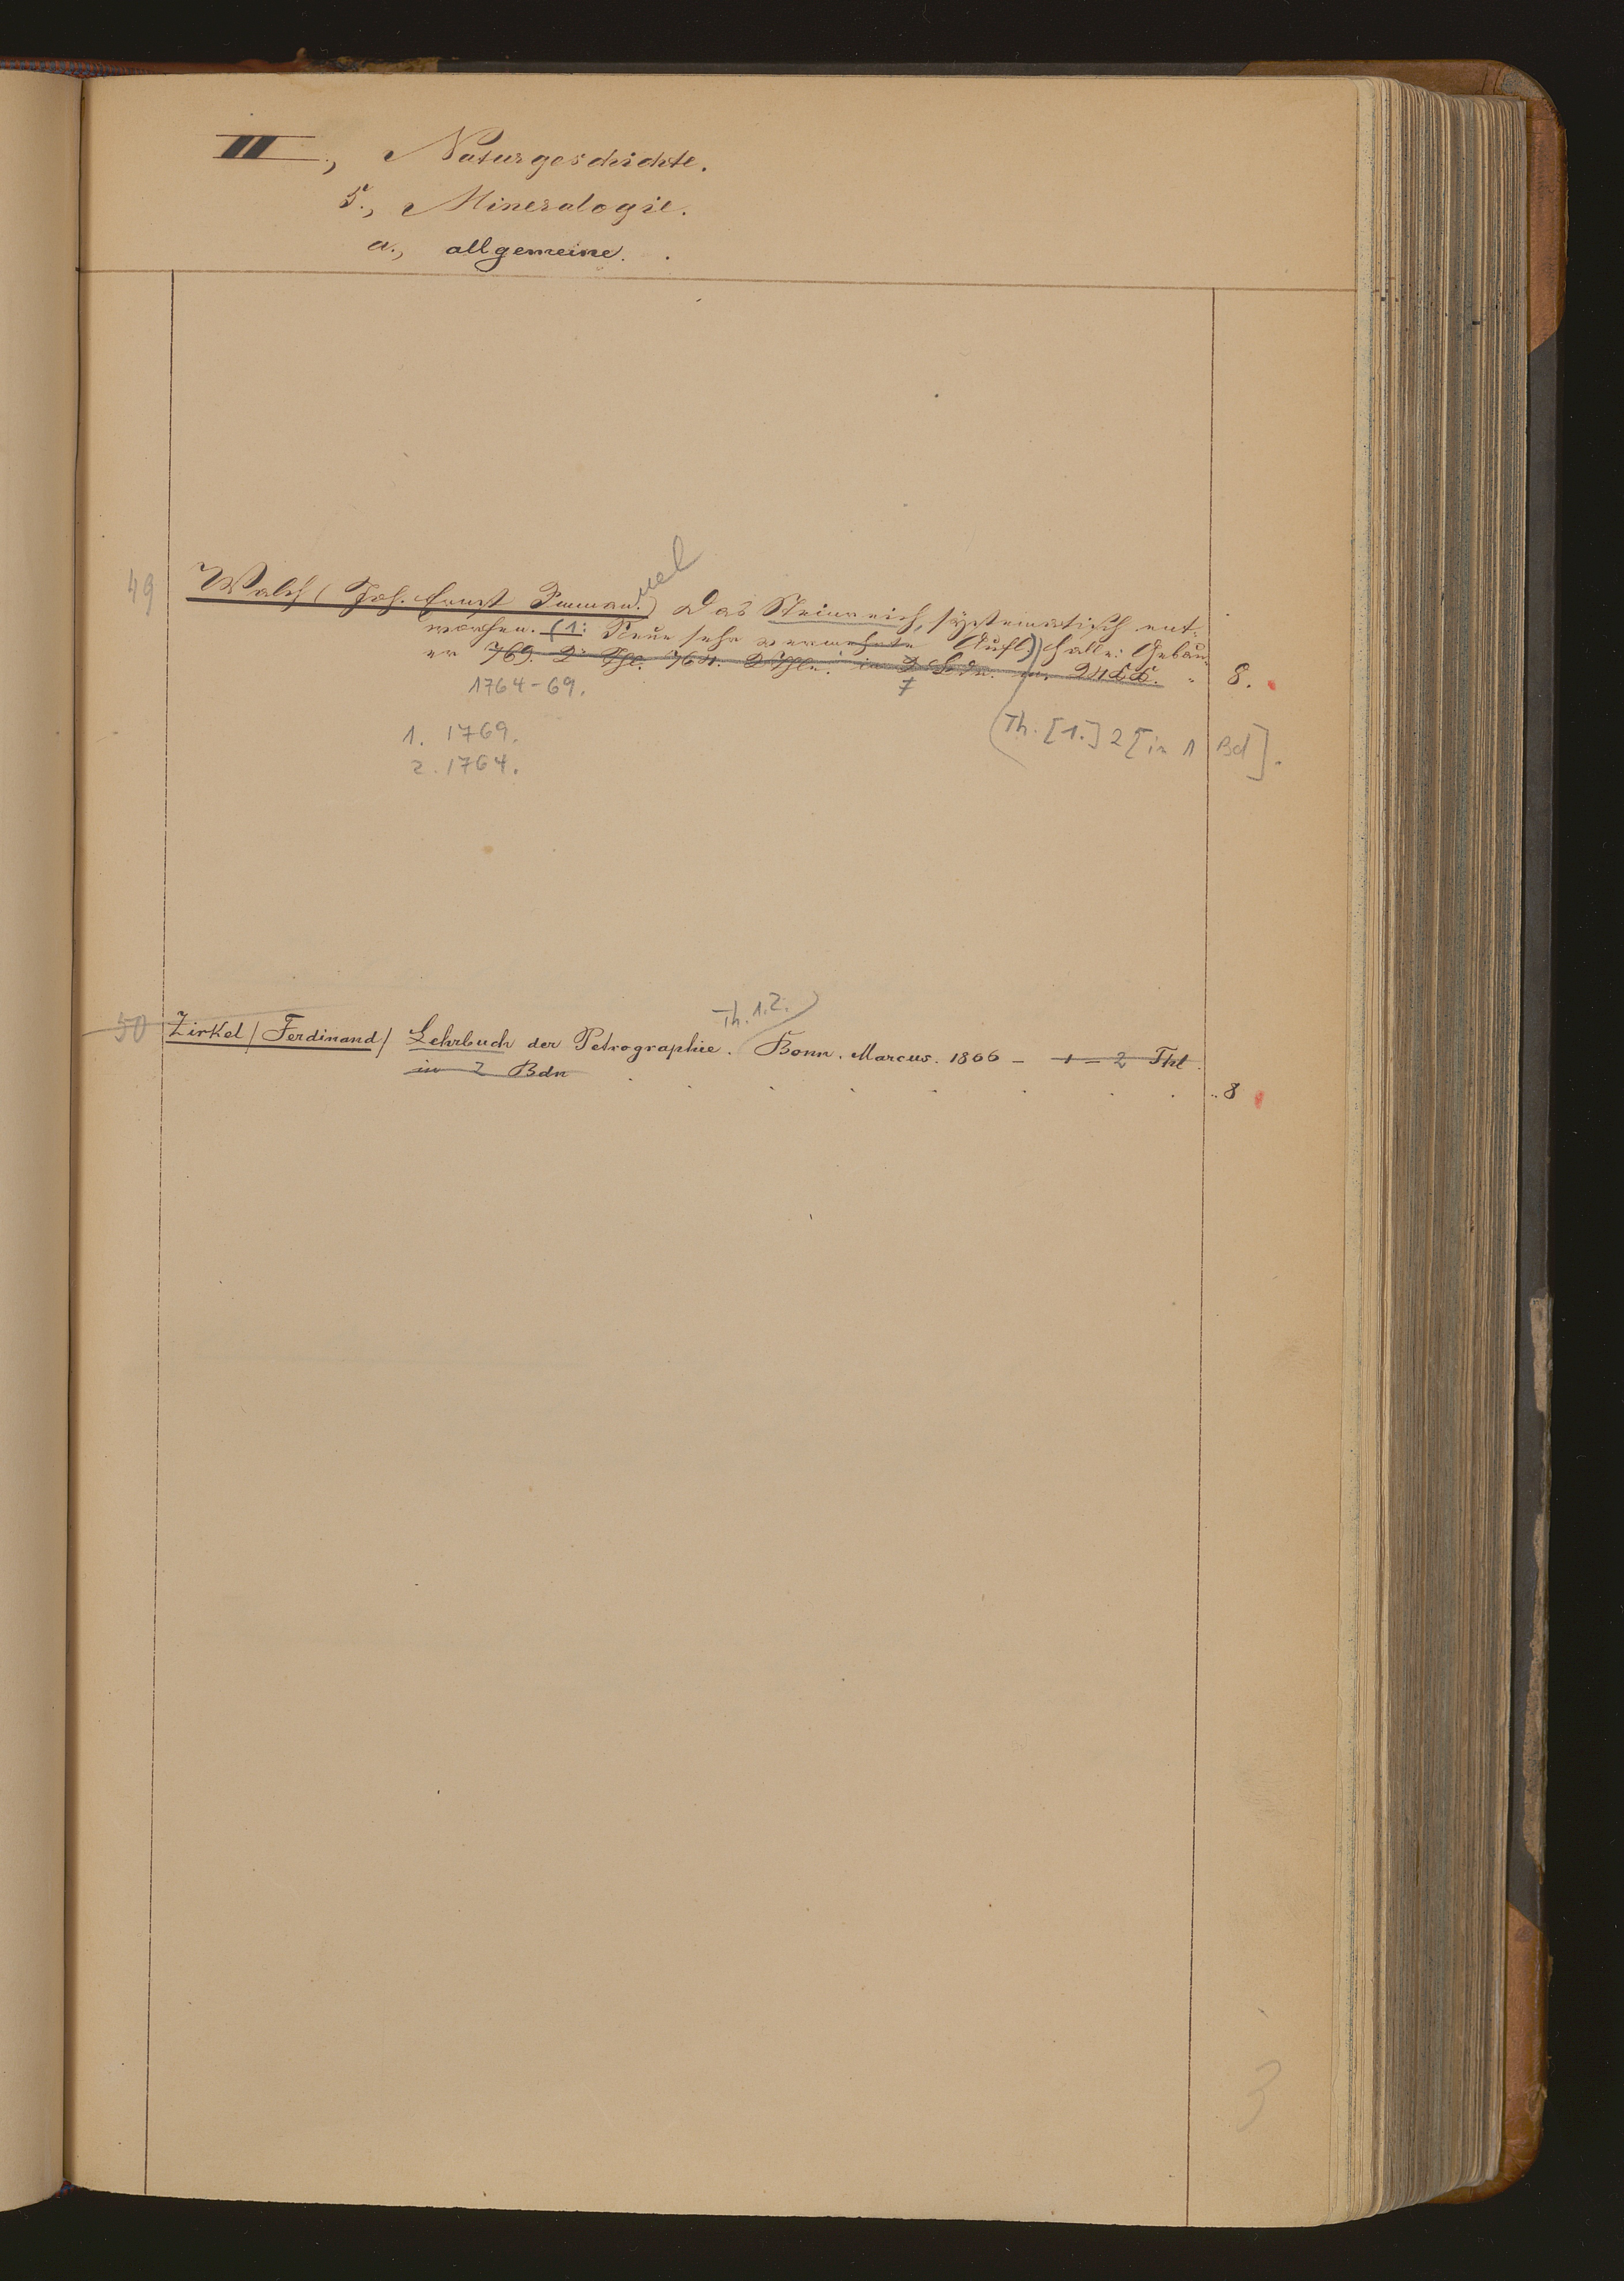 II., Naturgeschichte.
5., Mineralogie.
a., allgemeine.
49 Walch (Joh. Ernst Immanuel) Das Steinreich, systematisch ent-
worfen. (1: Neue sehr vermehrte Aufl.) Halle: Gebau-
er 769. 2r Thl. 764. 2 Thle. in 2 Bdn. m. 24 8.
1764-69.
1. 1769.
2. 1764.
(Th. [1.] 2 [in 1 Bd].
Th. 1.2.
50 Zirkel (Ferdinand) Lehrbuch der Petrographie. Bonn. Marcus. 1866 - 1 = 2 Thl.
in 2 Bdn 8
3